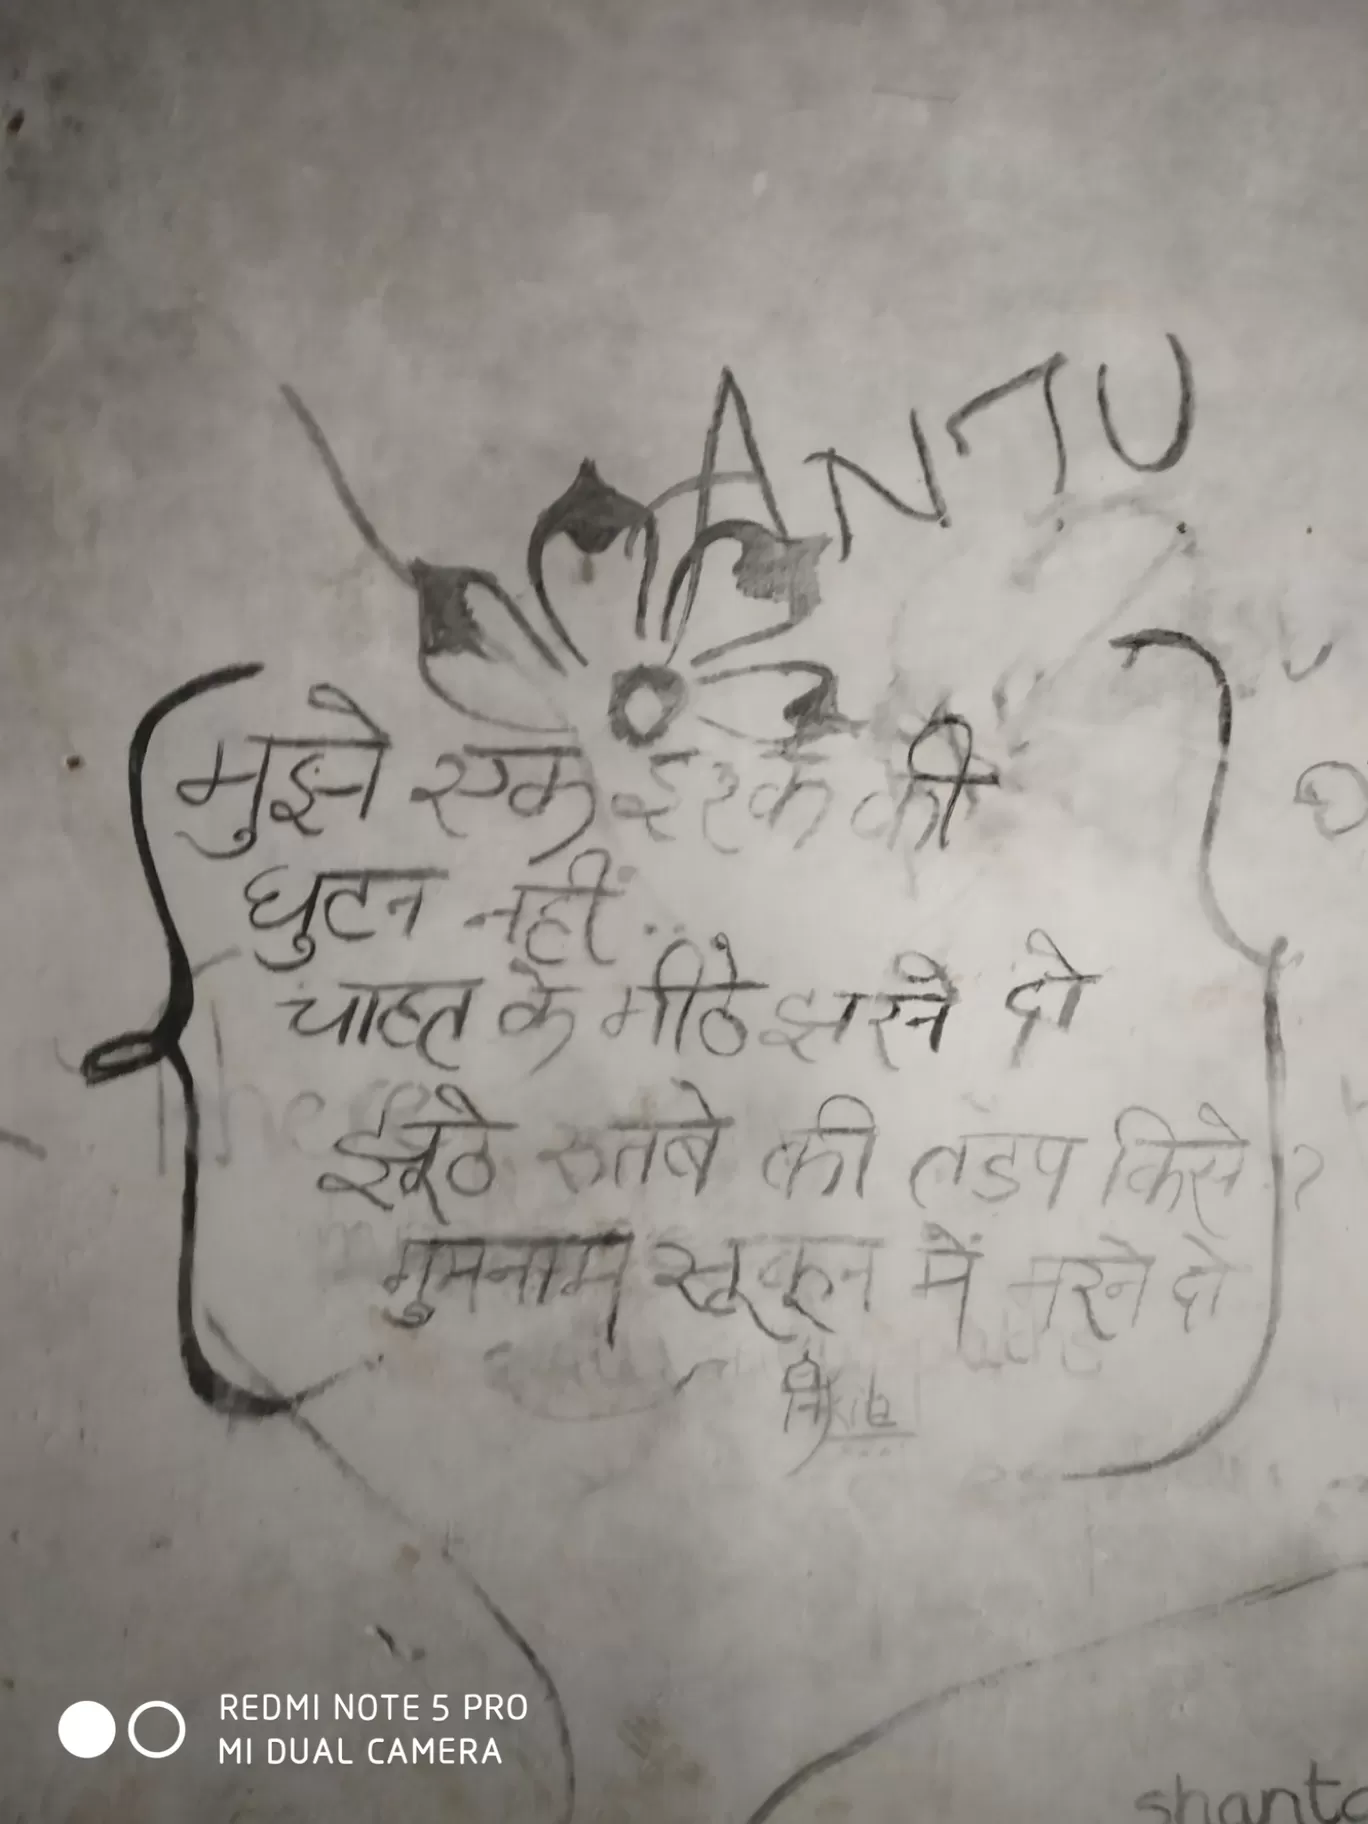 ANJU
मुझे एक इश्क की
घुटन नहीं..
चाहत के मीठे झरने दो
झूठे रुतबे की तड़प किसे?
गुमनाम सूकून में मरने दो
REDMI NOTE 5 PRO
MI DUAL CAMERA
shanta